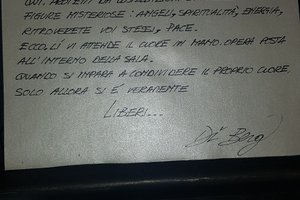 QUI, PROTETTI DA
FIGURE MYSTERIOSE: ANGELI, SPIRITUALITÀ, ENERGIA,
RITROVERETE VOI STESSI, PACE.
ECCO, LÌ VI ATTENDE IL CUORE IN MANO. OPERA POSTA
ALL'INTERNO DELLA SALA.
QUANDO SI IMPARA A CONDIVIDERE IL PROPRIO CUORE,
SOLO ALLORA SI È VERAMENTE
LIBERI...
Di Berg